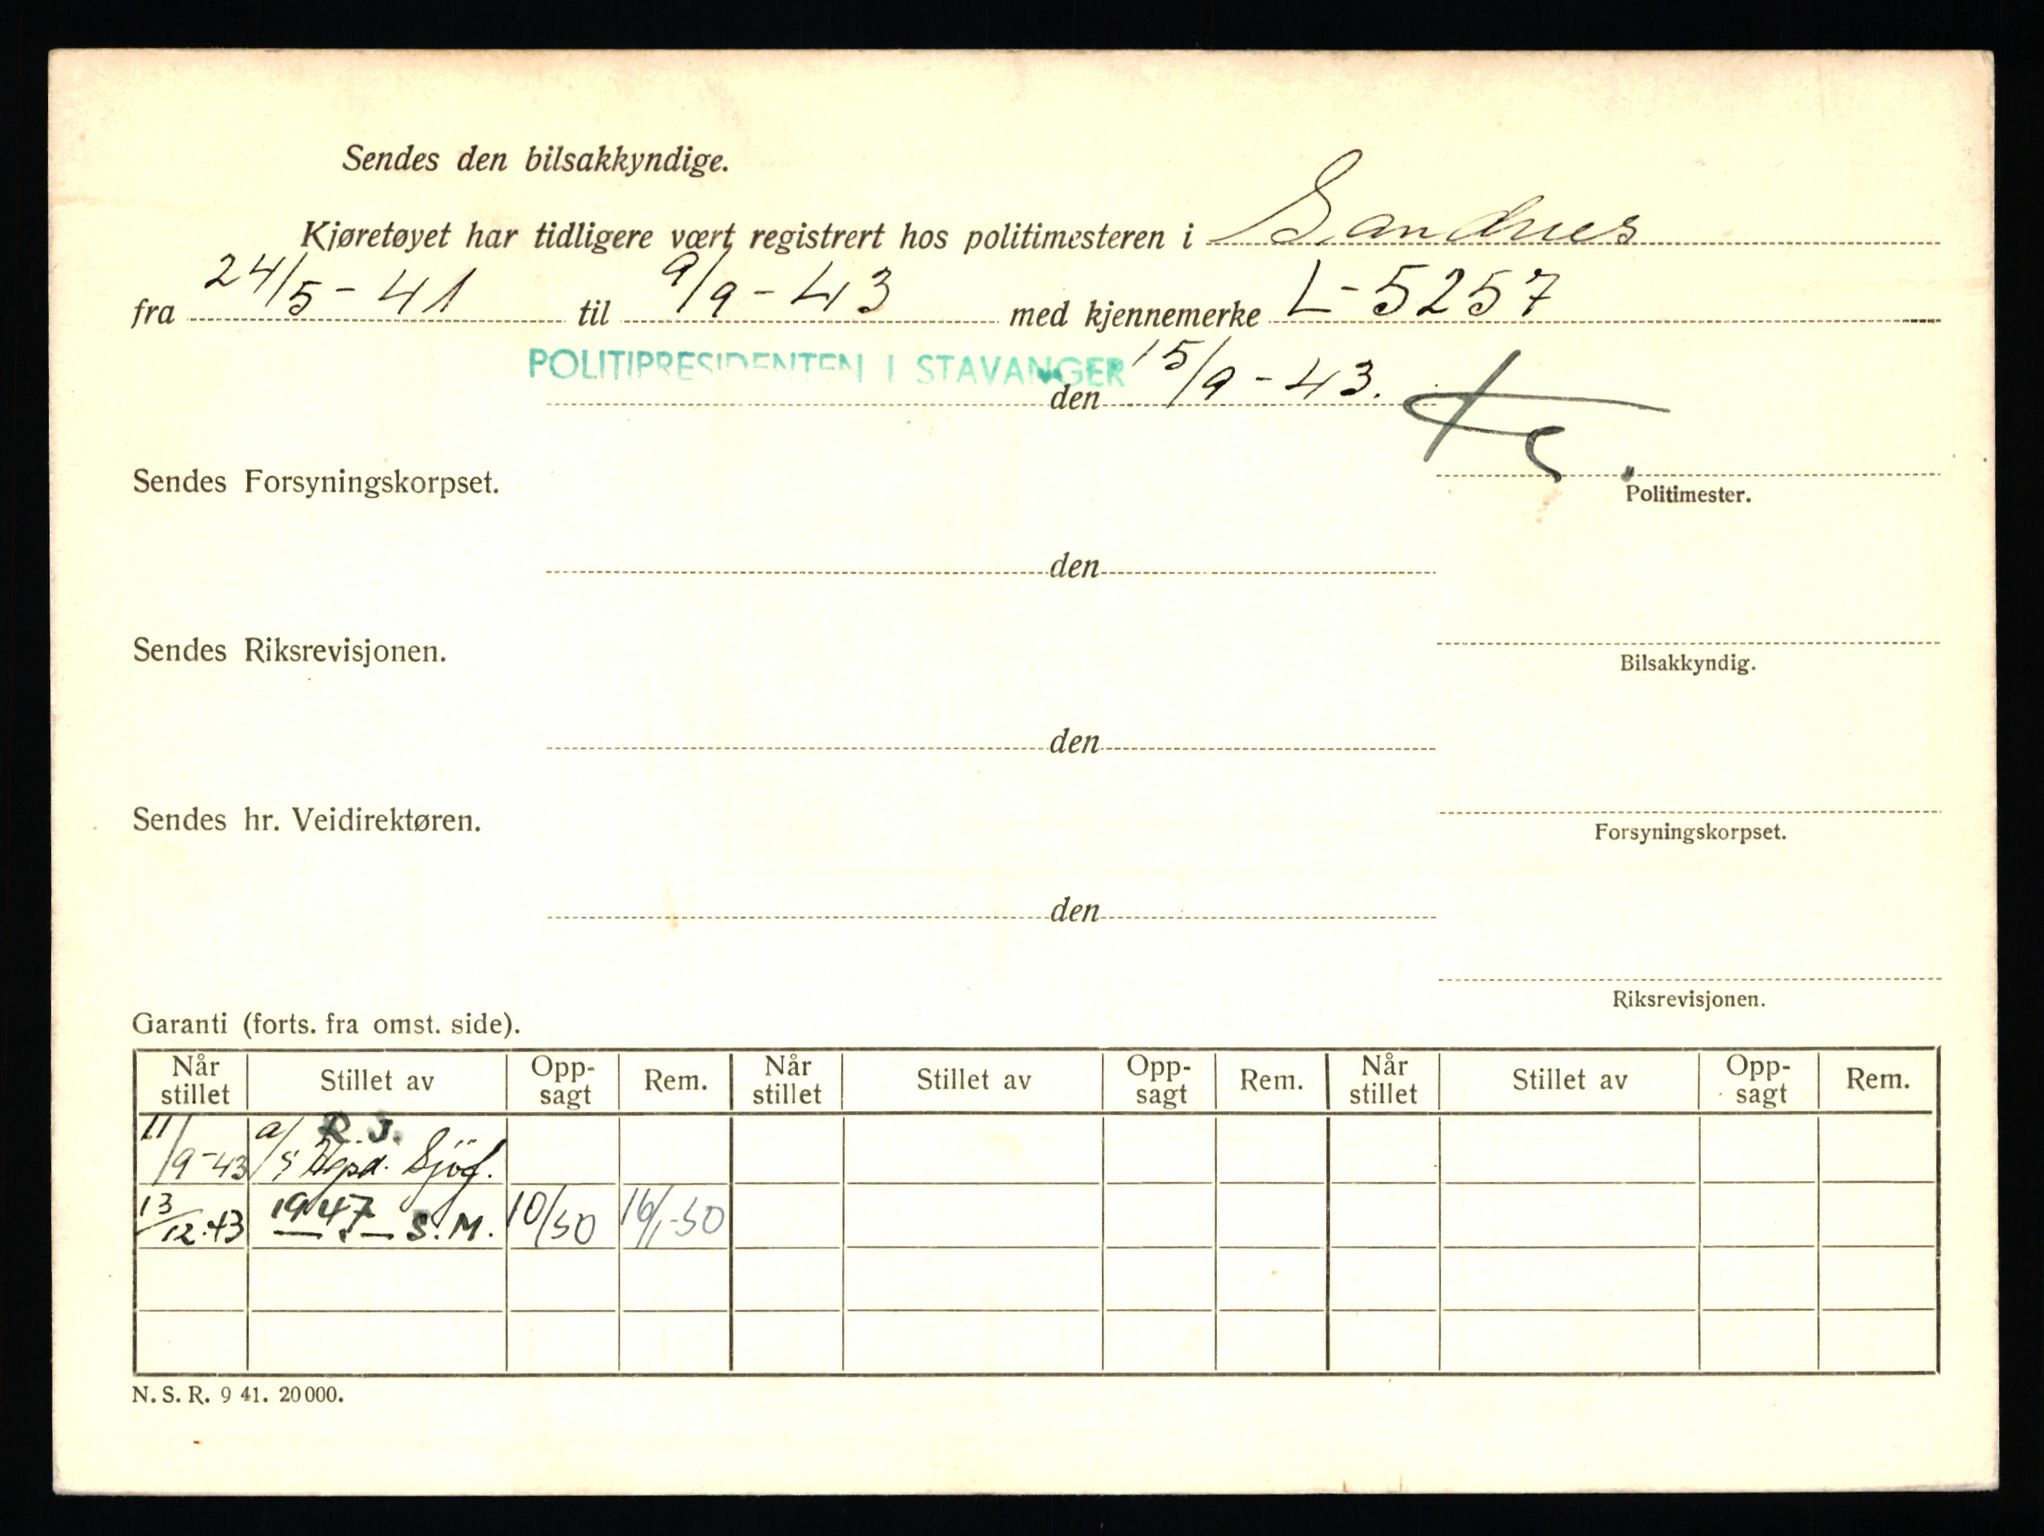 Sendes den bilsakkyndige.
Kjøretøyet har tidligere vært registrert hos politimesteren i Sandnes
fra 24/5 - 41 til 9/9 - 43 med kjennemerke L - 5257
POLITIPRESIDENTEN I STAVANGER den 15/9 - 43.
Sendes Forsyningskorpset.
Politimester.
den
Sendes Riksrevisjonen.
Bilsakkyndig.
den
Sendes hr. Veidirektøren.
Forsyningskorpset.
den
Riksrevisjonen.
Garanti (forts. fra omst. side).
Når stillet Stillet av Opp- sagt Rem. Når stillet Stillet av Opp- sagt Rem. Når stillet Stillet av Opp- sagt Rem.
11/9-43 a/ R J. Sjöf.
13/12.43 1947 S. M. 10/50 16/1-50
N. S. R. 9 41. 20 000.